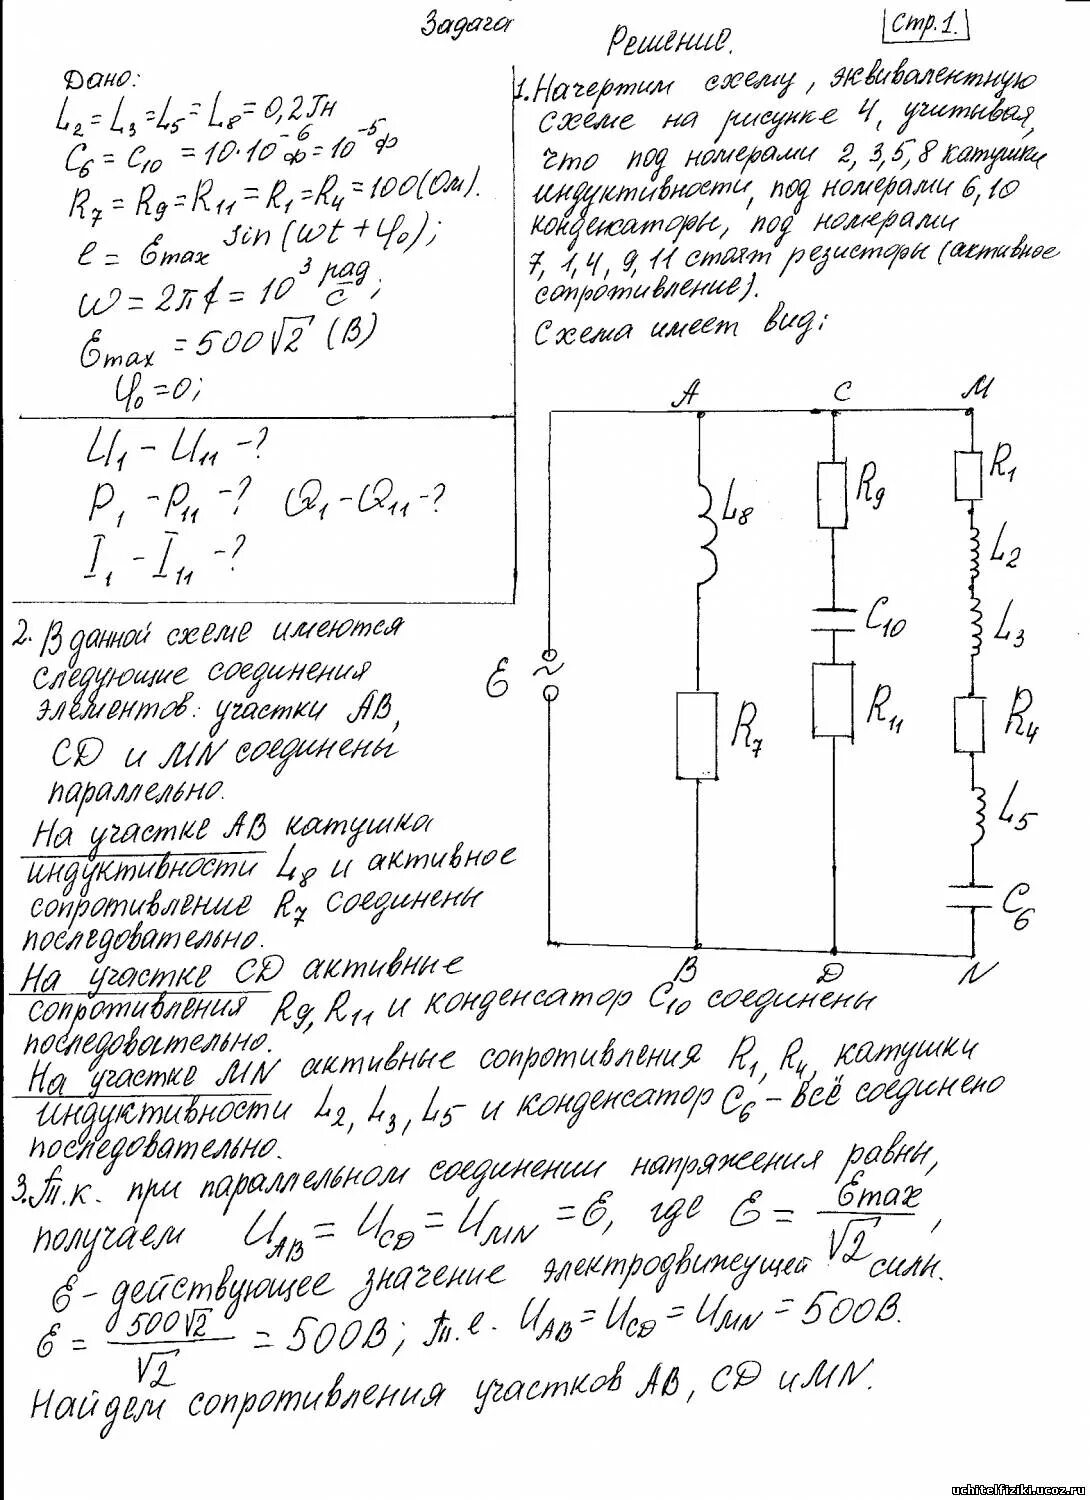 Задача
Стр.1.
Решение.
Дано:
L₂ = L₃ = L₅ = L₈ = 0,2 Гн
C₆ = C₁₀ = 10·10⁻⁶ Ф = 10⁻⁵ Ф
R₇ = R₉ = R₁₁ = R₁ = R₄ = 100 (Ом).
e = Ɛmax sin(ωt + φ₀);
ω = 2πf = 10³ рад/с;
Ɛmax = 500√2 (В)
φ₀ = 0;
U₁ – U₁₁ –?
P₁ – P₁₁ –? Q₁ – Q₁₁ –?
I₁ – I₁₁ –?
1. Начертим схему, эквивалентную
схеме на рисунке 4, учитывая,
что под номерами 2, 3, 5, 8 катушки
индуктивности, под номерами 6, 10
конденсаторы, под номерами
7, 1, 4, 9, 11 стоят резисторы (активное
сопротивление).
Схема имеет вид:
A C M
R₁
R₉
L₈
L₂
C₁₀
L₃
Ɛ ~
R₁₁
R₄
R₇
L₅
C₆
B D N
2. В данной схеме имеются
следующие соединения
элементов: участки AB,
CD и MN соединены
параллельно.
На участке AB катушка
индуктивности L₈ и активное
сопротивление R₇ соединены
последовательно.
На участке CD активные
сопротивления R₉, R₁₁ и конденсатор C₁₀ соединены
последовательно.
На участке MN активные сопротивления R₁, R₄, катушки
индуктивности L₂, L₃, L₅ и конденсатор C₆ – всё соединено
последовательно.
3. Т.к. при параллельном соединении напряжения равны,
получаем U_AB = U_CD = U_MN = Ɛ, где Ɛ = Ɛmax/√2,
Ɛ – действующее значение электродвижущей силы.
Ɛ = 500√2/√2 = 500В; т.е. U_AB = U_CD = U_MN = 500В.
Найдем сопротивления участков AB, CD и MN.
uchitelfiziki.ucoz.ru